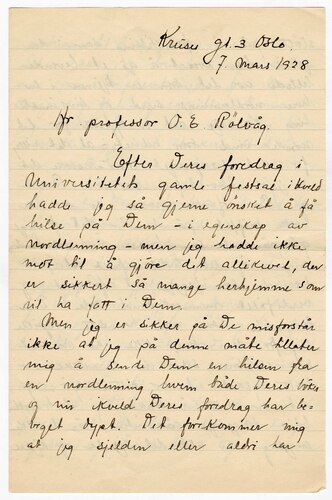 Kruses gt. 3 Oslo,
7. Mars 1928
Hr. professor O. E. Rölvåg.
Efter Deres foredrag i
Universitetets gamle festsal ikveld
hadde jeg så gjerne ønsket å få
hilse på Dem – i egenskap av
nordlenning – men jeg hadde ikke
mot til å gjöre det allikevel, der
er sikkert så mange herhjemme som
vil ha fatt i Dem.
Men jeg er sikker på De misforstår
ikke at jeg på denne måte tillater
mig å sende Dem en hilsen fra
en nordlenning hvem både Deres böker
og nu ikveld Deres foredrag har be-
veget dypt. Det forekommer mig
at jeg sjelden eller aldri har